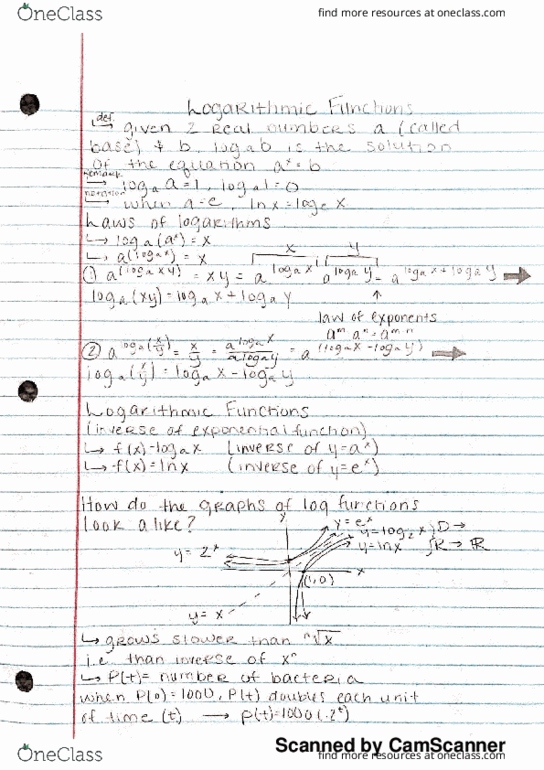 OneClass
find more resources at oneclass.com
Logarithmic Functions
def.
↳ given 2 real numbers a (called
base) & b, logₐb is the solution
of the equation aˣ=b
remark
→ logₐa=1, logₐ1=0
notation
→ when a=e, ln x=logₑ x
Laws of logarithms
↳ logₐ(aˣ)=x
↳ a^(logₐx)=x
x y
① a^(logₐxy) = xy = a^(logₐx) a^(logₐy) = a^(logₐx+logₐy) →
logₐ(xy)=logₐx+logₐy ↑
law of exponents
② a^(logₐ(x/y)) = x/y = a^(logₐx)/a^(logₐy) = a^(logₐx-logₐy) →
logₐ(x/y)=logₐx-logₐy
Logarithmic Functions
(inverse of exponential function)
↳ f(x)=logₐx (inverse of y=aˣ)
↳ f(x)=ln x (inverse of y=eˣ)
How do the graphs of log functions
look alike?
y
y=eˣ
y=log₂x } D →
y=2ˣ
y=lnx } R → ℝ
x
(1,0)
y=x
↳ grows slower than ⁿ√x
i.e. than inverse of xⁿ
↳ P(t)= number of bacteria
when P(0)=1000, P(t) doubles each unit
of time (t) → P(t)=1000(·2ᵗ)
Scanned by CamScanner
OneClass
find more resources at oneclass.com